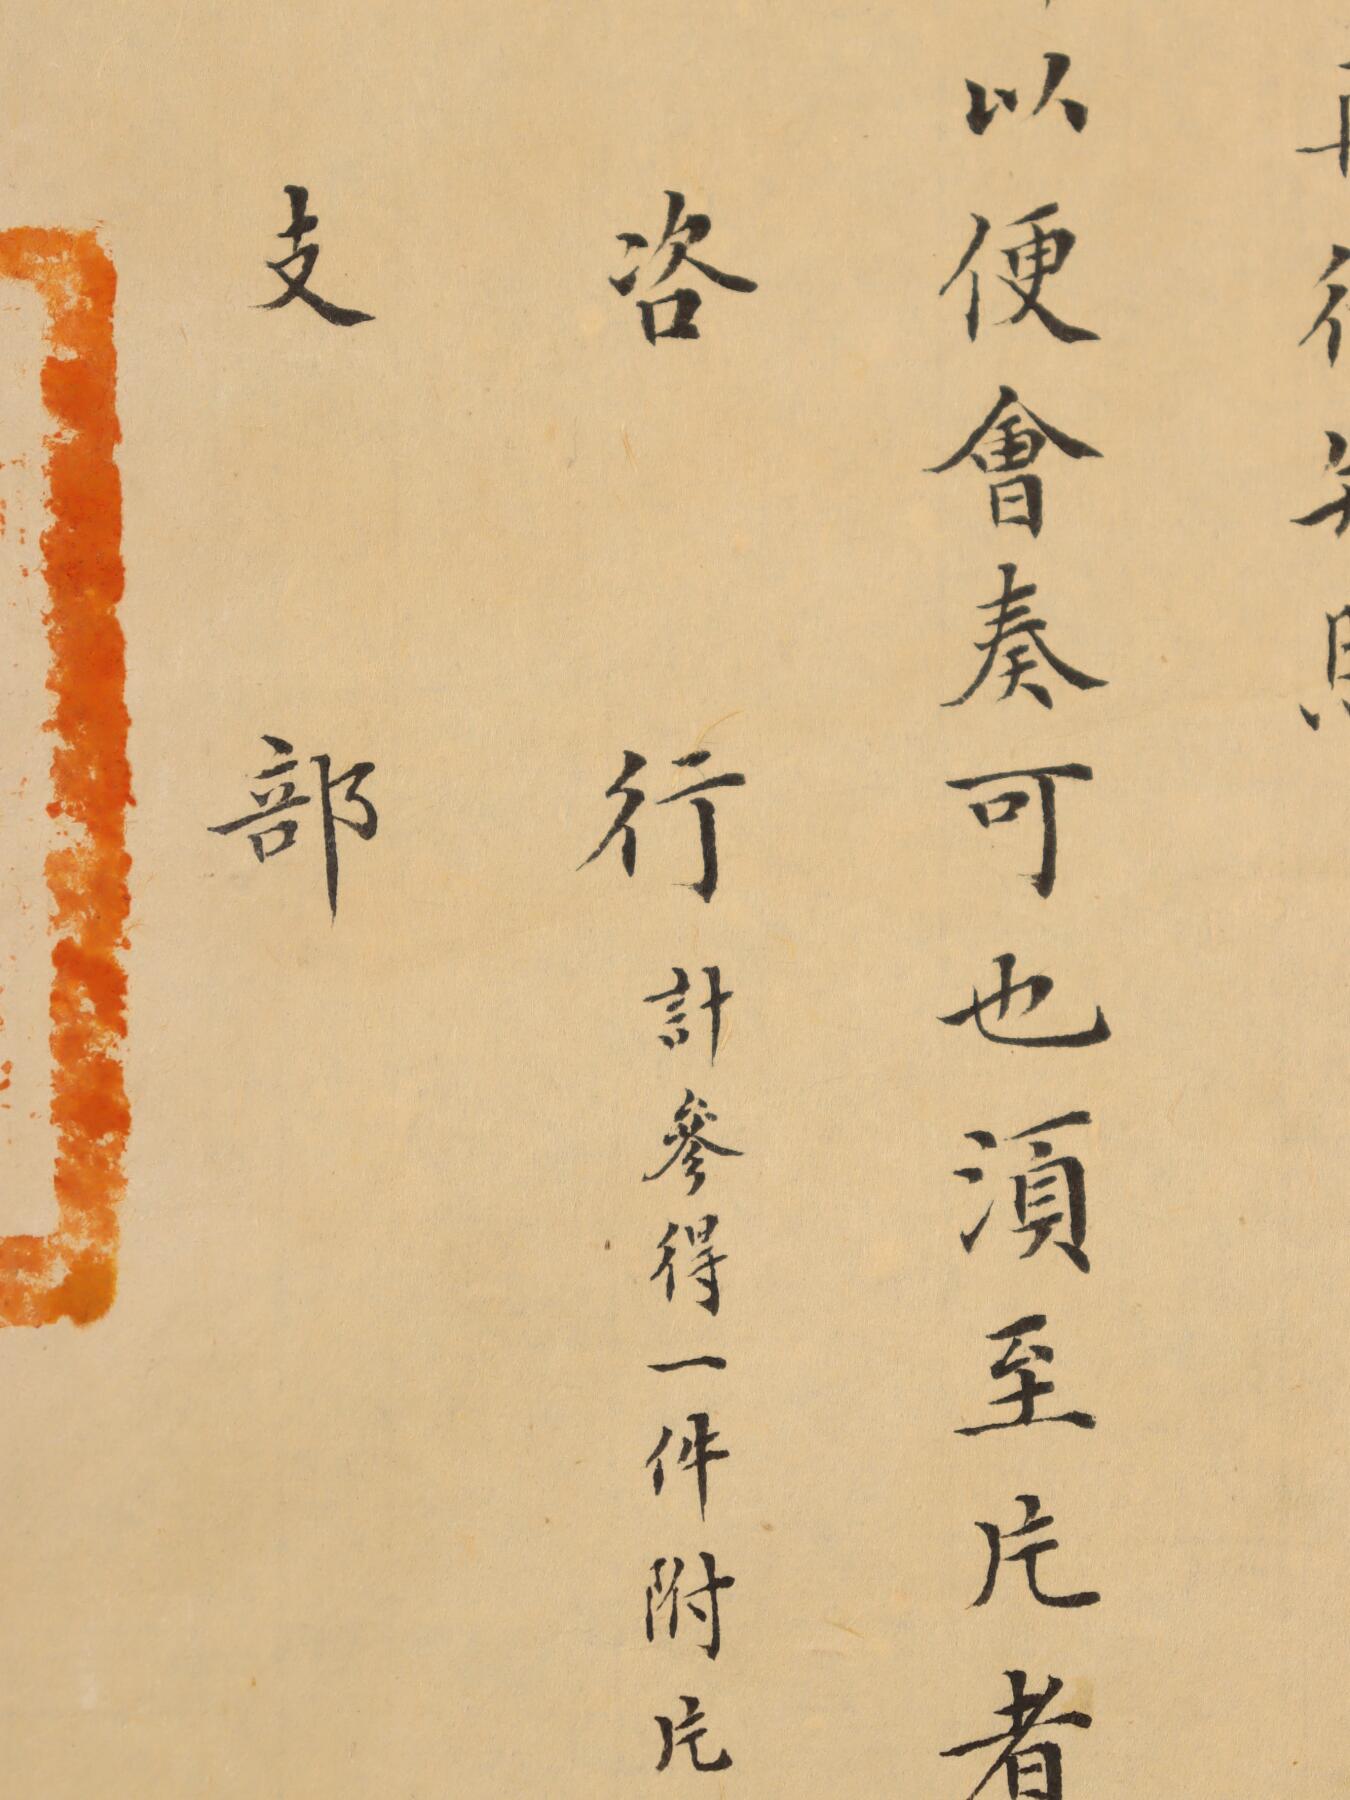 以便會奏可也湏至片者
咨行計參得一件附片
支部